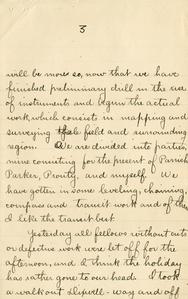 3
will be more so, now that we have
finished preliminary drill in the use
of instruments and begun the actual
work, which consists in mapping and
surveying the field and surrounding
region. We are divided into parties,
mine consisting for the present of Parrish
Parker, Prouty, and myself. We
have gotten in some leveling, chaining,
compass and transit work and of them
I like the transit best.
Yesterday all fellows without cuts
or defective work were let off for the
afternoon, and I think the holiday
has rather gone to our heads. I took
a walk out way and off